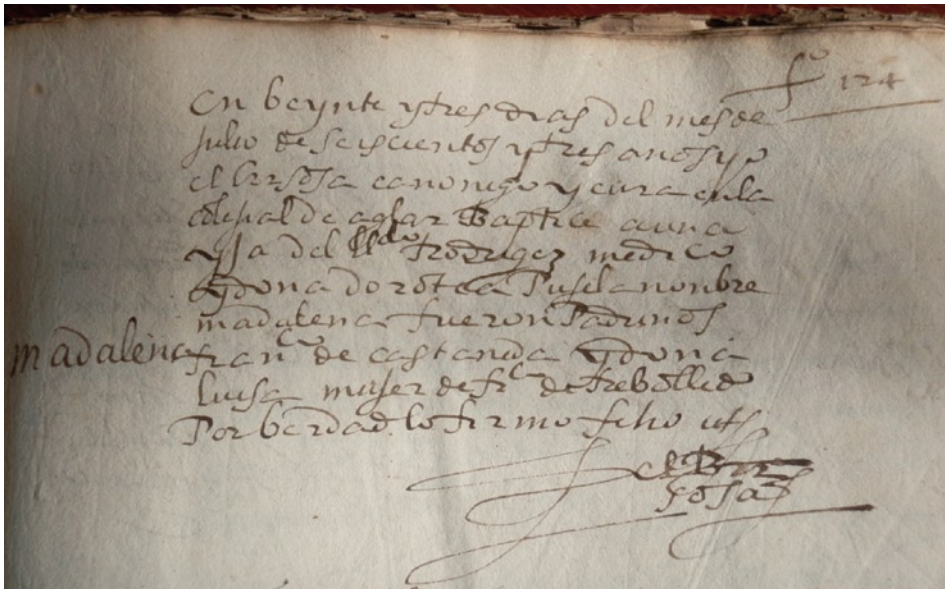 fº 124
en beynte y tres dias del mes de
julio de seiscientos y tres anos yo
el br sosa canonigo y cura en la
colesial de aglar baptice a una
yja del lldo Rodrigez medico
y dona dorotea Pusela nonbre
madalena fueron Padrinos
madalena
franco de castaneda y dona
luisa mujer de frco de Rebolledo
Por berdad lo firmo fcho uts
el Br
sosa